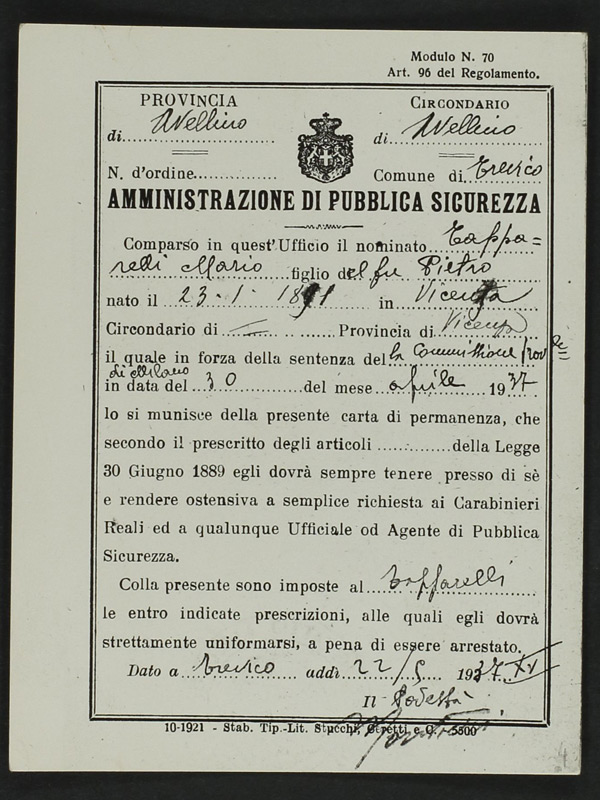 Modulo N. 70
Art. 96 del Regolamento.
PROVINCIA
di Avellino
CIRCONDARIO
di Avellino
N. d'ordine
Comune di Trevico
AMMINISTRAZIONE DI PUBBLICA SICUREZZA
Comparso in quest' Ufficio il nominato Tappa=
relli Mario figlio del fu Pietro
nato il 23-1-1891 in Vicenza
Circondario di — Provincia di Vicenza
il quale in forza della sentenza della Commissione Prov
di Milano
in data del 30 del mese aprile 1937
lo si munisce della presente carta di permanenza, che
secondo il prescritto degli articoli della Legge
30 Giugno 1889 egli dovrà sempre tenere presso di sè
e rendere ostensiva a semplice richiesta ai Carabinieri
Reali ed a qualunque Ufficiale od Agente di Pubblica
Sicurezza.
Colla presente sono imposte al Tapparelli
le entro indicate prescrizioni, alle quali egli dovrà
strettamente uniformarsi, a pena di essere arrestato.
Dato a Trevico addì 22/5 1937 XV
Il Podestà
10-1921 - Stab. Tip.-Lit. Stucchi, Ceretti e C. - 5500
4